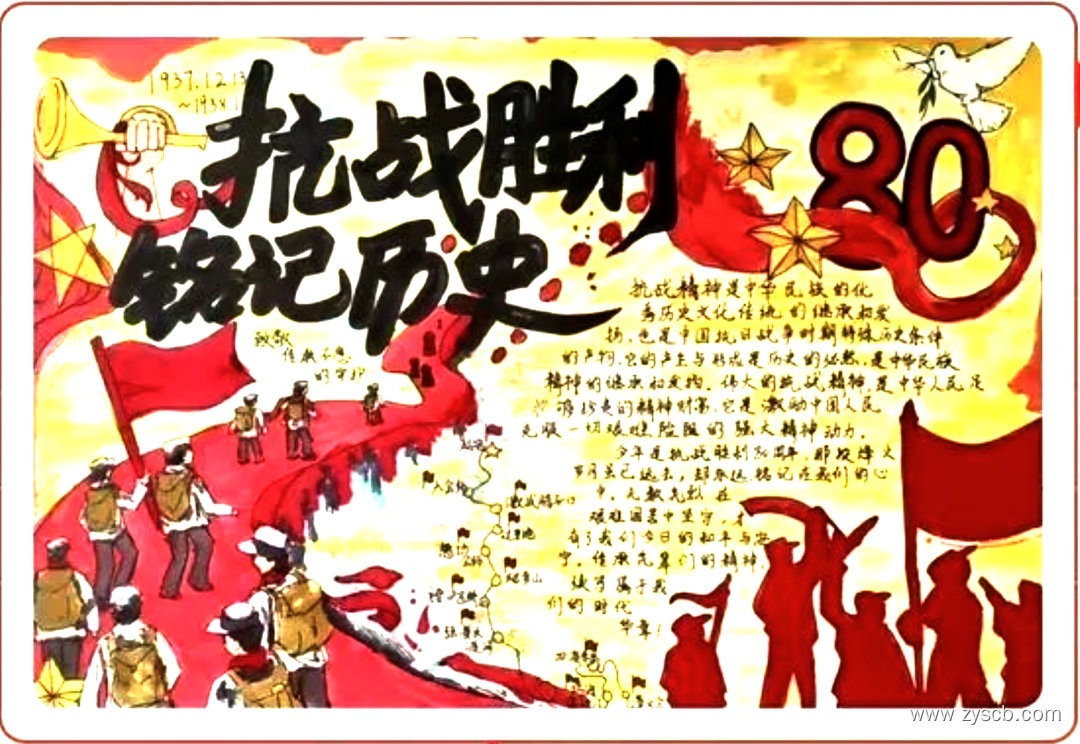 1937.12.13
~1938.1
抗战胜利
铭记历史
80
致敬
传承不息
的守护
抗战精神是中华民族的
秀历史文化传统的继承和发
扬,也是中国抗日战争时期特殊历史条件
的产物,它的产生与形成是历史的必然,是中华民族
精神的继承和发扬。伟大的抗战精神,是中华人民足
够珍贵的精神财富,它是激励中国人民
克服一切艰难险阻的强大精神动力。
今年是抗战胜利80周年,那段烽火
岁月虽已远去,却永远铭记在我们的心
中,无数先烈在
艰难困苦中坚守,才
有了我们今日的和平与安
宁。传承先辈们的精神,
续写属于我
们的时代
华章!
激战腊子口
过草地
www.zyscb.com